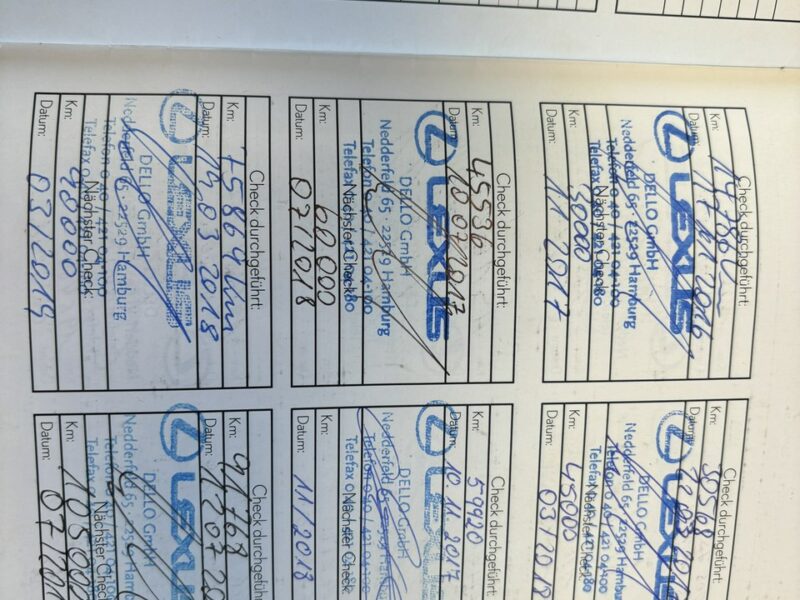 Check durchgeführt:
Km:
Datum:
LEXUS
DELLO GmbH
Nedderfeld 65 · 22529 Hamburg
Telefon 0 40 / 421 04-100
Telefax
Nächster Check:
Km: 30000
Datum: 11 2017
Check durchgeführt:
Km: 30508
Datum:
LEXUS
DELLO GmbH
Nedderfeld 65 · 22529 Hamburg
Telefon 0 40 / 421 04-100
Telefax
Nächster Check:
Km: 45000
Datum: 03/2018
Check durchgeführt:
Km: 45536
Datum: 10 07 2017
LEXUS
DELLO GmbH
Nedderfeld 65 · 22529 Hamburg
Telefon 0 40 / 421 04-100
Telefax
Nächster Check:
Km: 60 000
Datum: 07/2018
Check durchgeführt:
Km: 59920
Datum: 10. 11. 2017
DELLO GmbH
Nedderfeld 65 · 22529 Hamburg
Telefon 0 40 / 421 04-100
Telefax
Nächster Check:
Km:
Datum: 11/2018
Check durchgeführt:
Km: 75864 km
Datum: 14 03 2018
LEXUS
DELLO GmbH
Nedderfeld 65 · 22529 Hamburg
Telefon 0 40 / 421 04-100
Telefax
Nächster Check:
Km: 90000
Datum: 03/2019
Check durchgeführt:
Km: 91768
Datum:
LEXUS
DELLO GmbH
Nedderfeld 65 · 22529 Hamburg
Telefon 0 40 / 421 04-100
Telefax
Nächster Check:
Km: 105000
Datum: 07/201